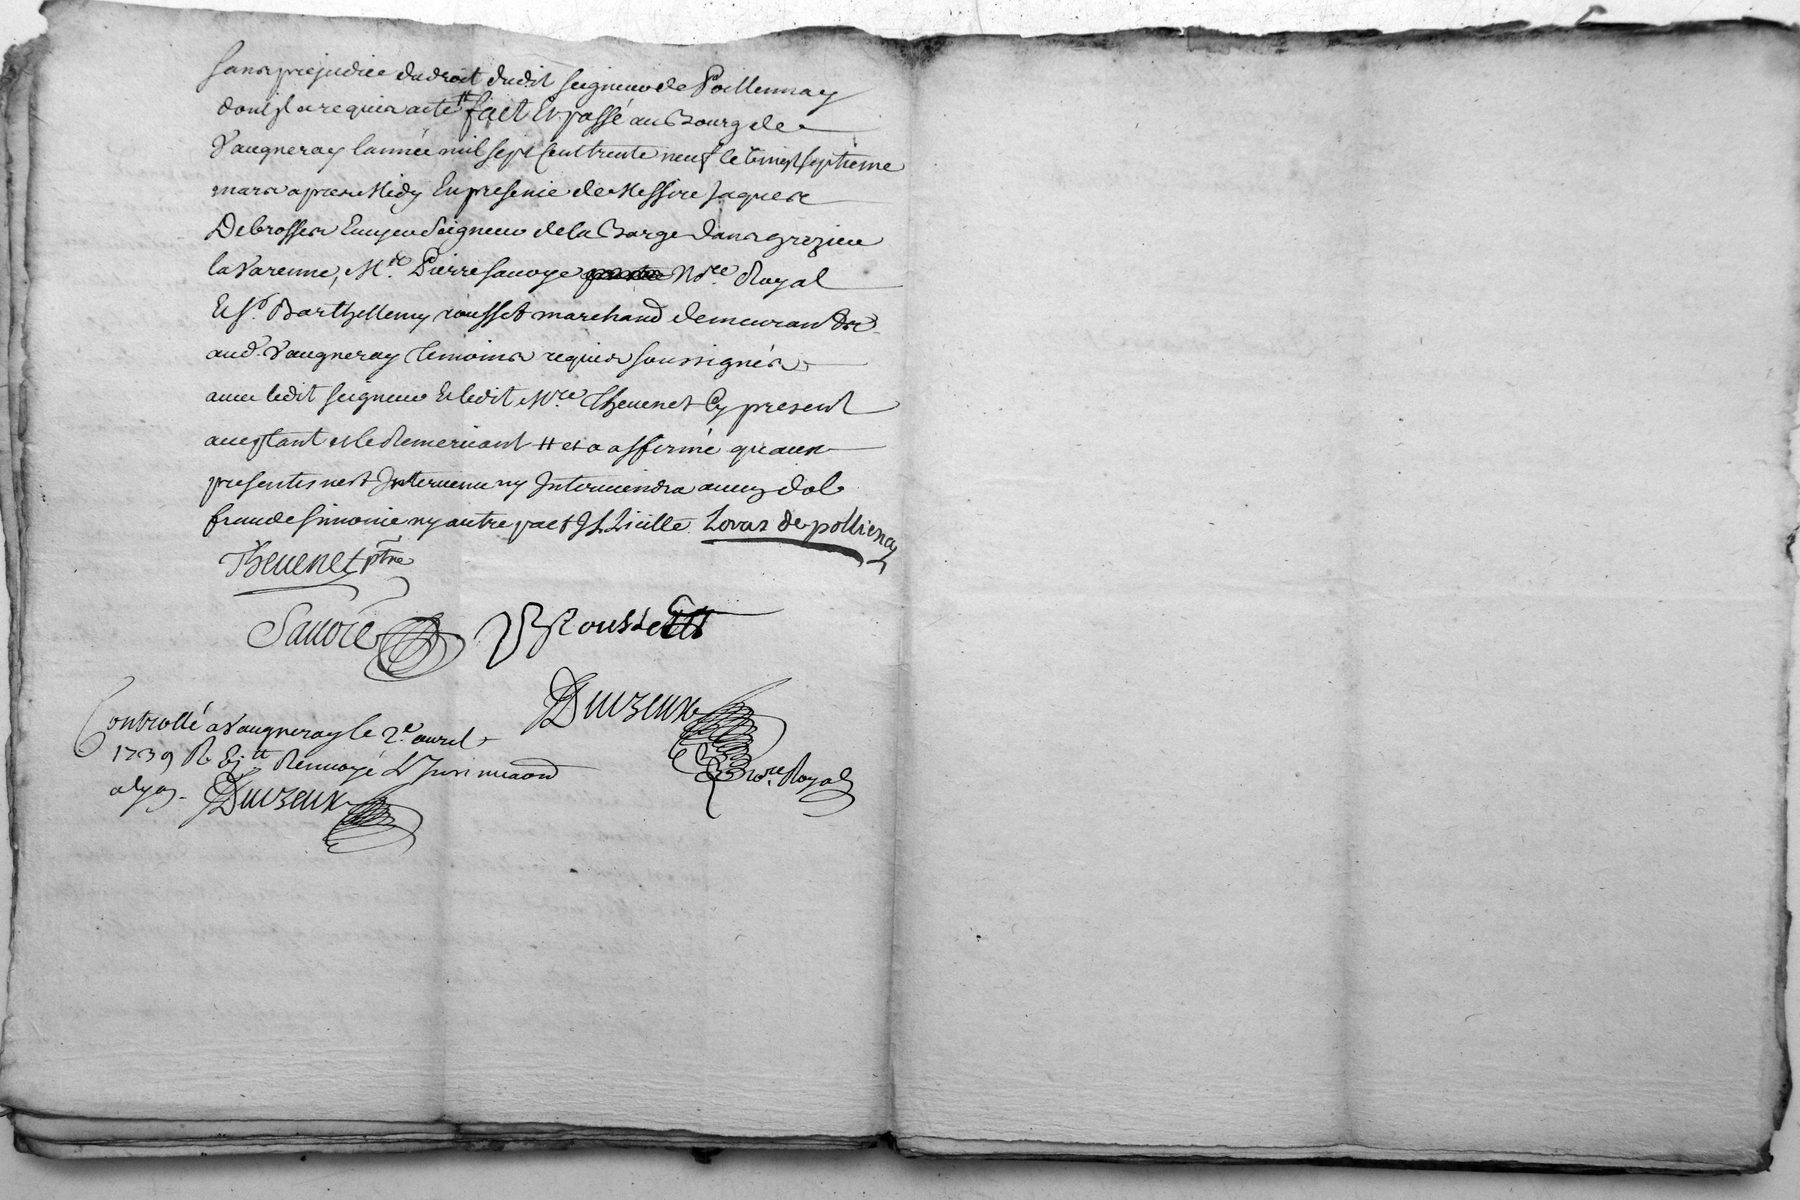 sans prejudice du droit dudit seigneur de Pollienay
dont il a requis acte # fait Et passé au Bourg de
Vaugneray l'année mil sept cent trente neuf le vingt septieme
mars apres Midy En presence de Messire Jaques
Debrosses Ecuyer Seigneur de la Barge dans grezieu
la Varenne, Mre Pierre Savoye Nore Royal
Et Sr Barthellemy rousset marchand demeurant
aud. Vaugneray temoins requis soussignés
avec ledit seigneur Et ledit Mre Thevenet Cy present
acceptant et le Remerciant # et a affirmé quaux
presentes nest Intervenu ny Interviendra aucun dol
fraude simonie ny autre pact Illicitte Lovas de pollienay
Thevenet ptre
Savoie B Roussett
Duvzeux
nore Royal
Controllé a Vaugneray le 2e avril
1739 R Renvoyé L'Insinuaon
a lyon. Duvzeux